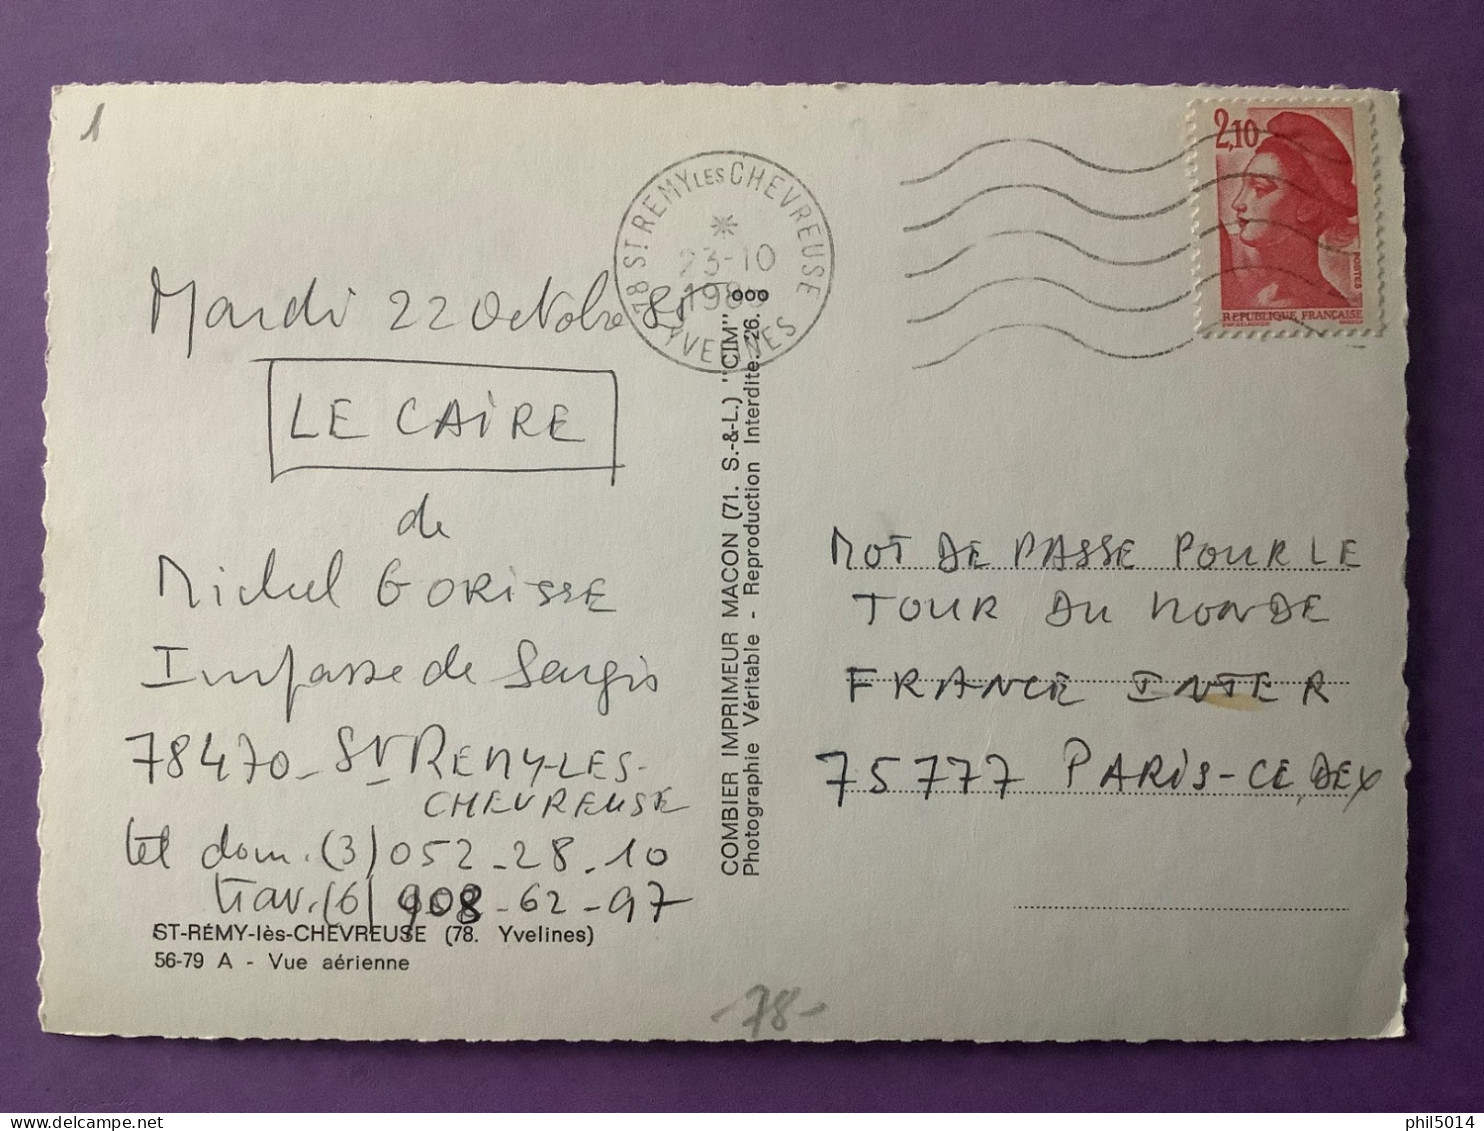 1
78 ST REMY LES CHEVREUSE
23-10
198
YVELINES
2,10
POSTES
REPUBLIQUE FRANÇAISE
Mardi 22 Octobre 85
LE CAIRE
de
Michel GORISSE
Impasse de Sargis
78470 - ST REMY-LES-
CHEVREUSE
tél dom. (3) 052-28-10
trav. (6) 908-62-97
ST-RÉMY-lès-CHEVREUSE (78. Yvelines)
56-79 A - Vue aérienne
COMBIER IMPRIMEUR MACON (71. S.-&-L.) "CIM"
Photographie Véritable - Reproduction Interdite. 26.
MOT DE PASSE POUR LE
TOUR DU MONDE
FRANCE INTER
75777 PARIS-CEDEX
-78-
www.delcampe.net
phil5014